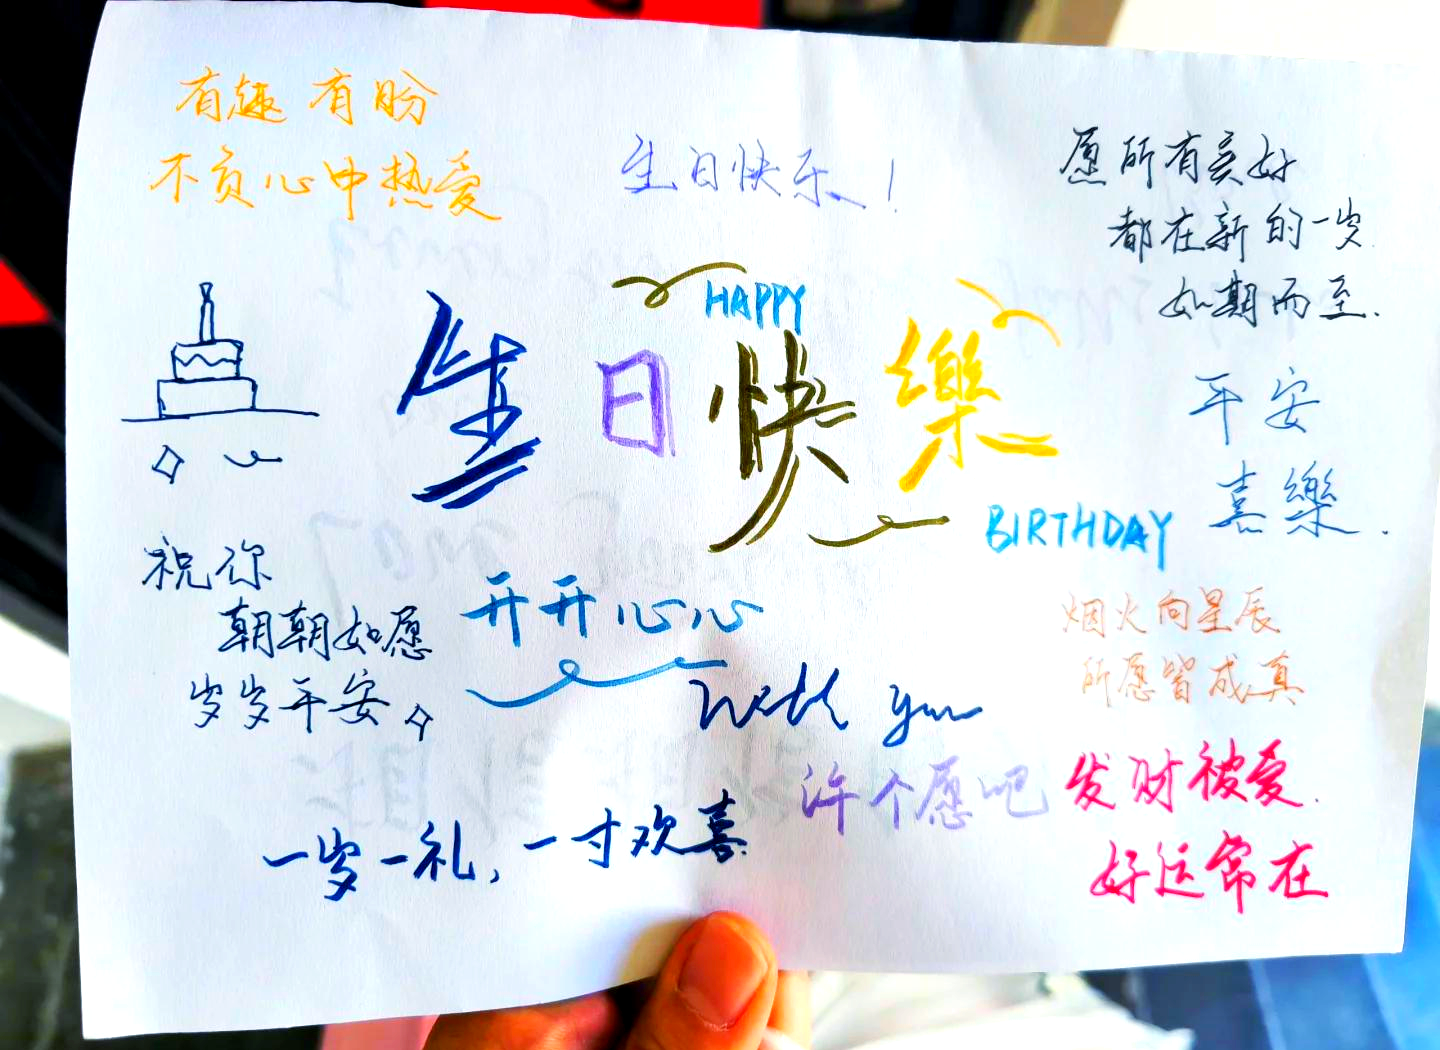 有趣有盼
不负心中热爱
生日快乐!
愿所有美好
都在新的一岁
如期而至.
HAPPY
生日快樂
BIRTHDAY
平安
喜樂.
祝你
朝朝如愿
岁岁平安
开开心心
with you
烟火向星辰
所愿皆成真
许个愿吧
发财被爱.
好运常在
一岁一礼,一寸欢喜